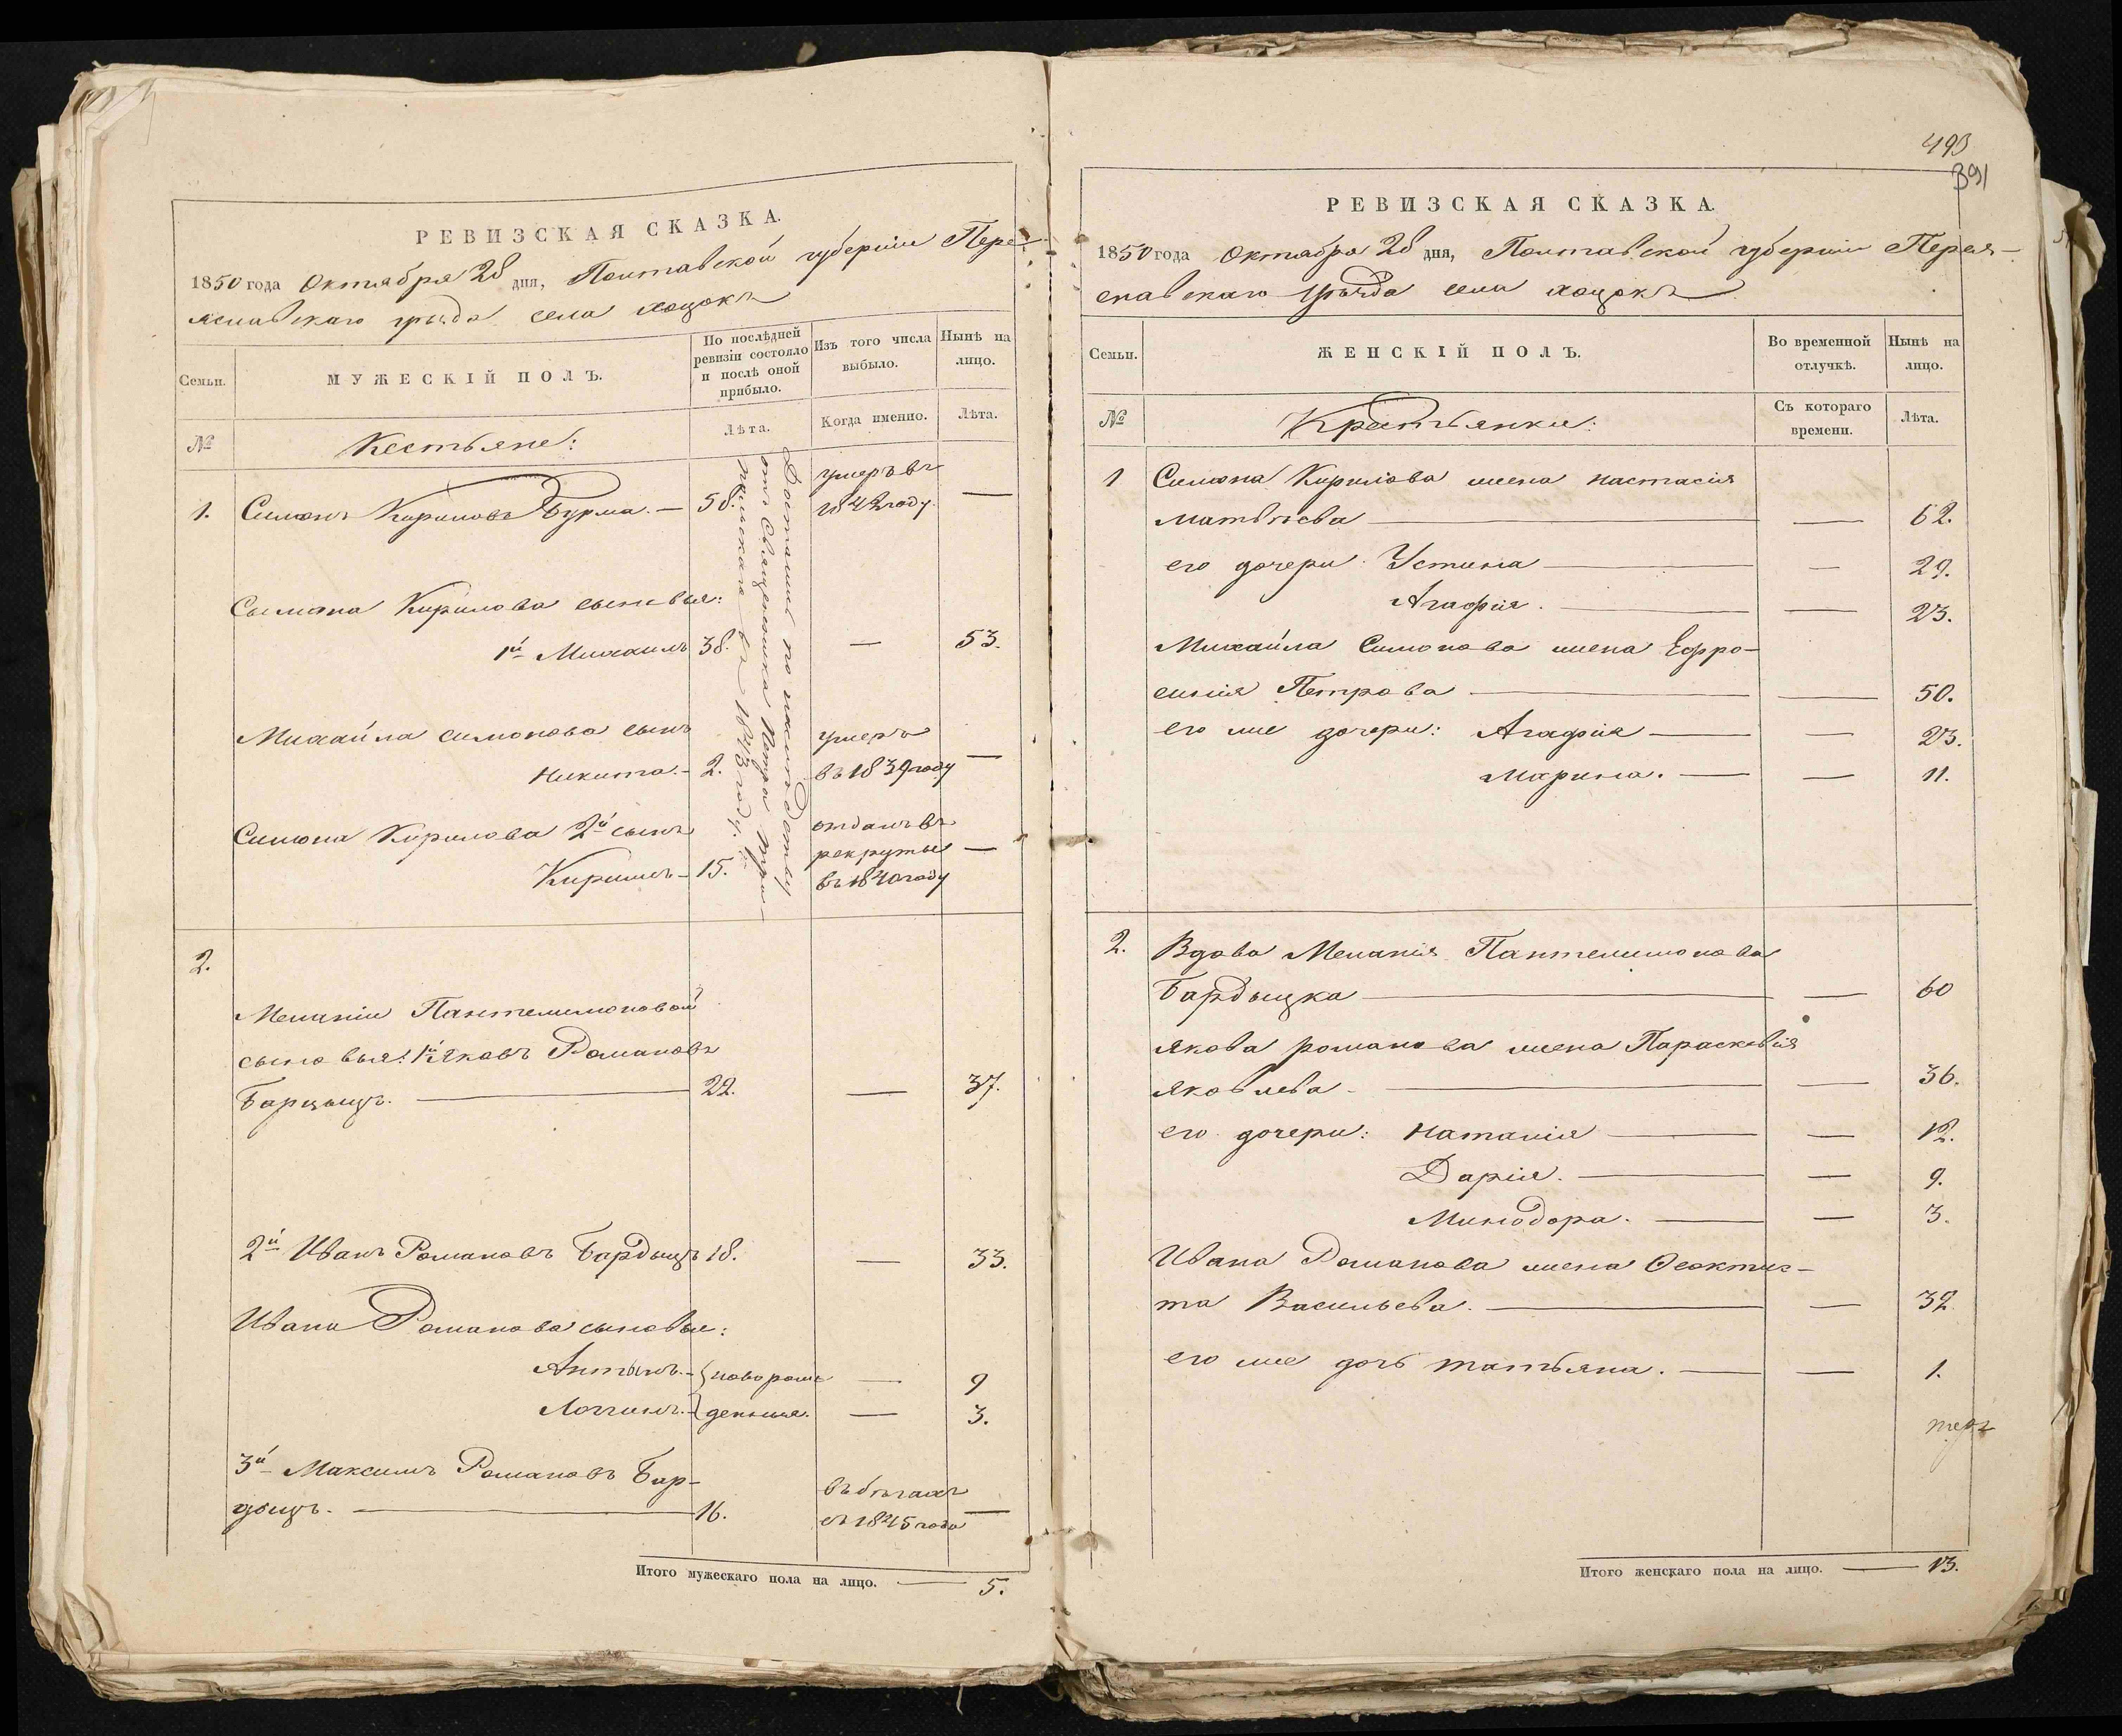 РЕВИЗСКАЯ СКАЗКА.
1850 года Октября 28 дня, Полтавской губерніи Пере-
яславскаго уѣзда села хоцокъ
Семьи.
МУЖЕСКІЙ ПОЛЪ.
По послѣдней ревизіи состояло и послѣ оной прибыло.
Изъ того числа выбыло.
Нынѣ на лицо.
№
Кестьяне:
Лѣта.
Когда именно.
Лѣта.
Достались по
отъ Священника Петра
въ 1843 году.
умеръ въ
1. Симонъ Кириловъ Бурма. — 58. 1842 году. —
Симона Кирилова сыновья:
1й Михаилъ 38. — 53.
Михайла симонова сынъ умеръ
никита. - 2. въ 1839 году —
Симона Кирилова 2й сынъ отданъ въ
рекруты —
Кирилъ - 15. въ 1840 году
2.
Меланіи Пантелимоновой
сыновья: 1й Яковъ Романовъ
Бардыщъ. — 22. — 37.
2й Иванъ Романовъ Бардыщъ 18. — 33.
Ивана Романова сыновья:
Антонъ. - новорож — 9
Логгинъ. - денныя. — 3.
3й Максимъ Романовъ Бар-
дыщъ. — 16. въ бегахъ
съ 1845 года —
Итого мужескаго пола на лицо. — 5.
493
391
РЕВИЗСКАЯ СКАЗКА.
1850 года Октября 28 дня, Полтавской губерніи Перея-
славскаго уѣзда села хоцокъ
Семьи.
ЖЕНСКІЙ ПОЛЪ.
Во временной отлучкѣ.
Нынѣ на лицо.
№
Крестьянки:
Съ котораго времени.
Лѣта.
1 Симона Кирилова жена настасія
матвѣева — — 62.
его дочери Устина — — 29.
Агафія. — — 23.
Михайла Симонова жена Ефро-
синія Петрова — — 50.
его же дочери: Агафія — — 23.
Марина. — — 11.
2. Вдова Меланія Пантелимонова
Бардыщка — — 60
якова романова жена Параскевія
яковлева — — 36.
его дочери: наталія — — 12.
Дарія. — — 9.
Минодора. — — 3.
Ивана Романова жена Феоктис-
та Васильева. — — 32.
его же дочь татьяна. — — 1.
Итого женскаго пола на лицо. — 13.